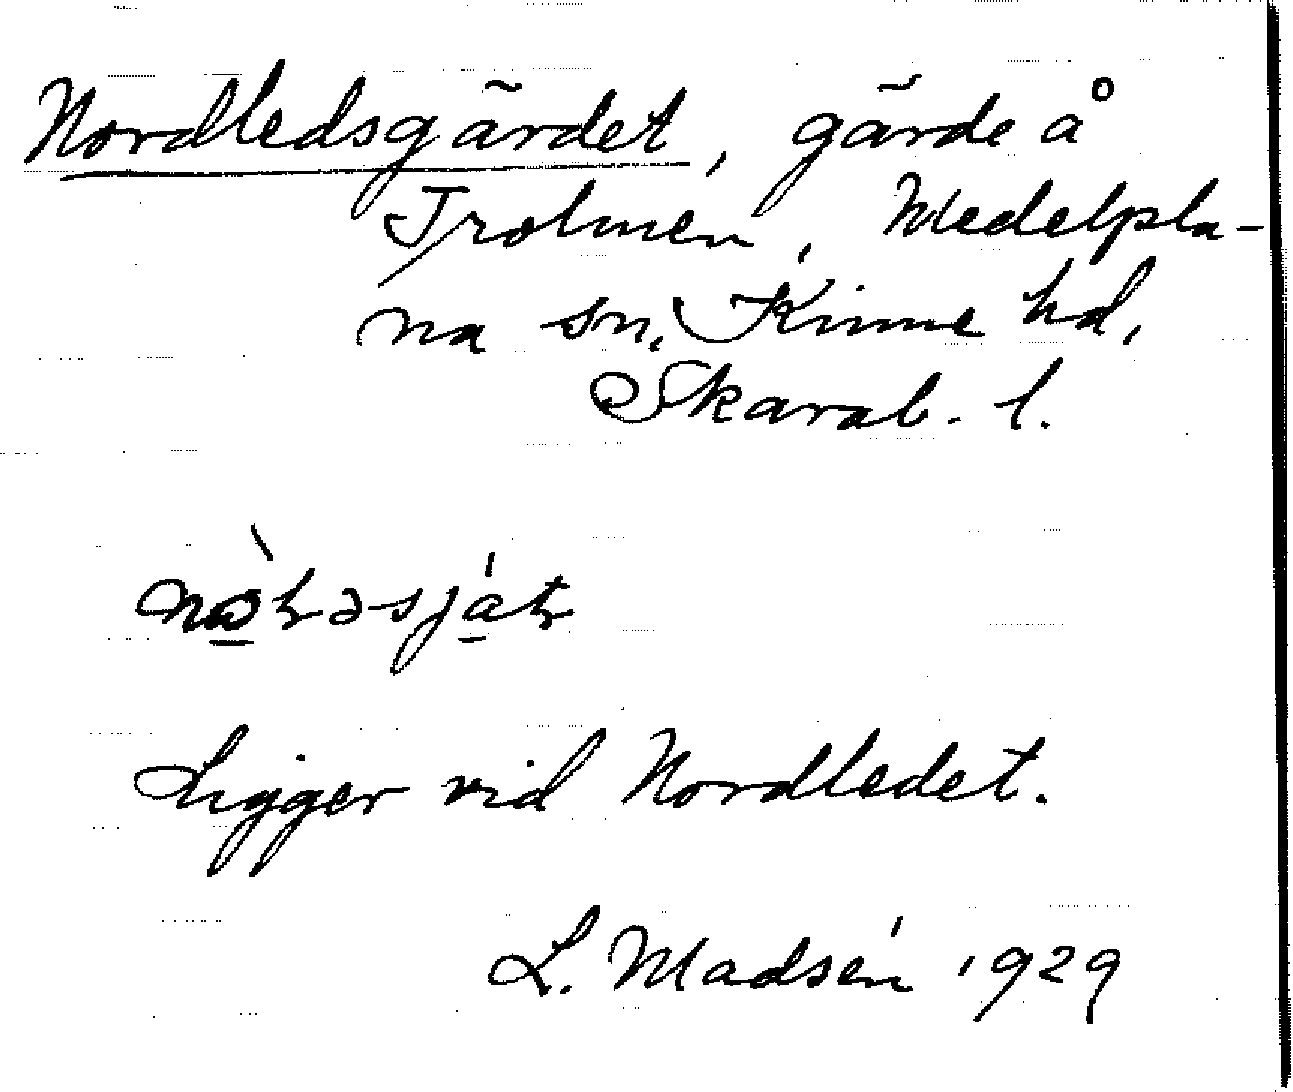 Nordledsgärdet, gärde å
Trolmen, Medelpla-
na sn, Kinne hd,
Skarab. l.
Ligger vid Nordledet.
L. Madsén 1929